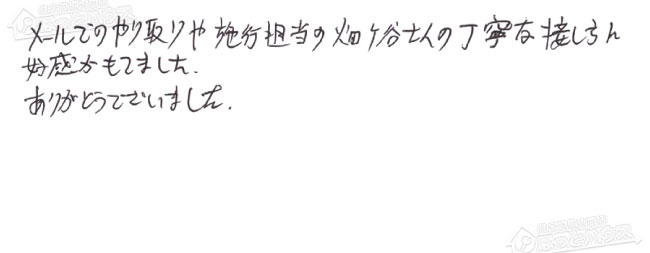 メールでのやり取りや施行担当の畑ヶ谷さんの丁寧な接しるん
好感がもてました.
ありがとうございました.